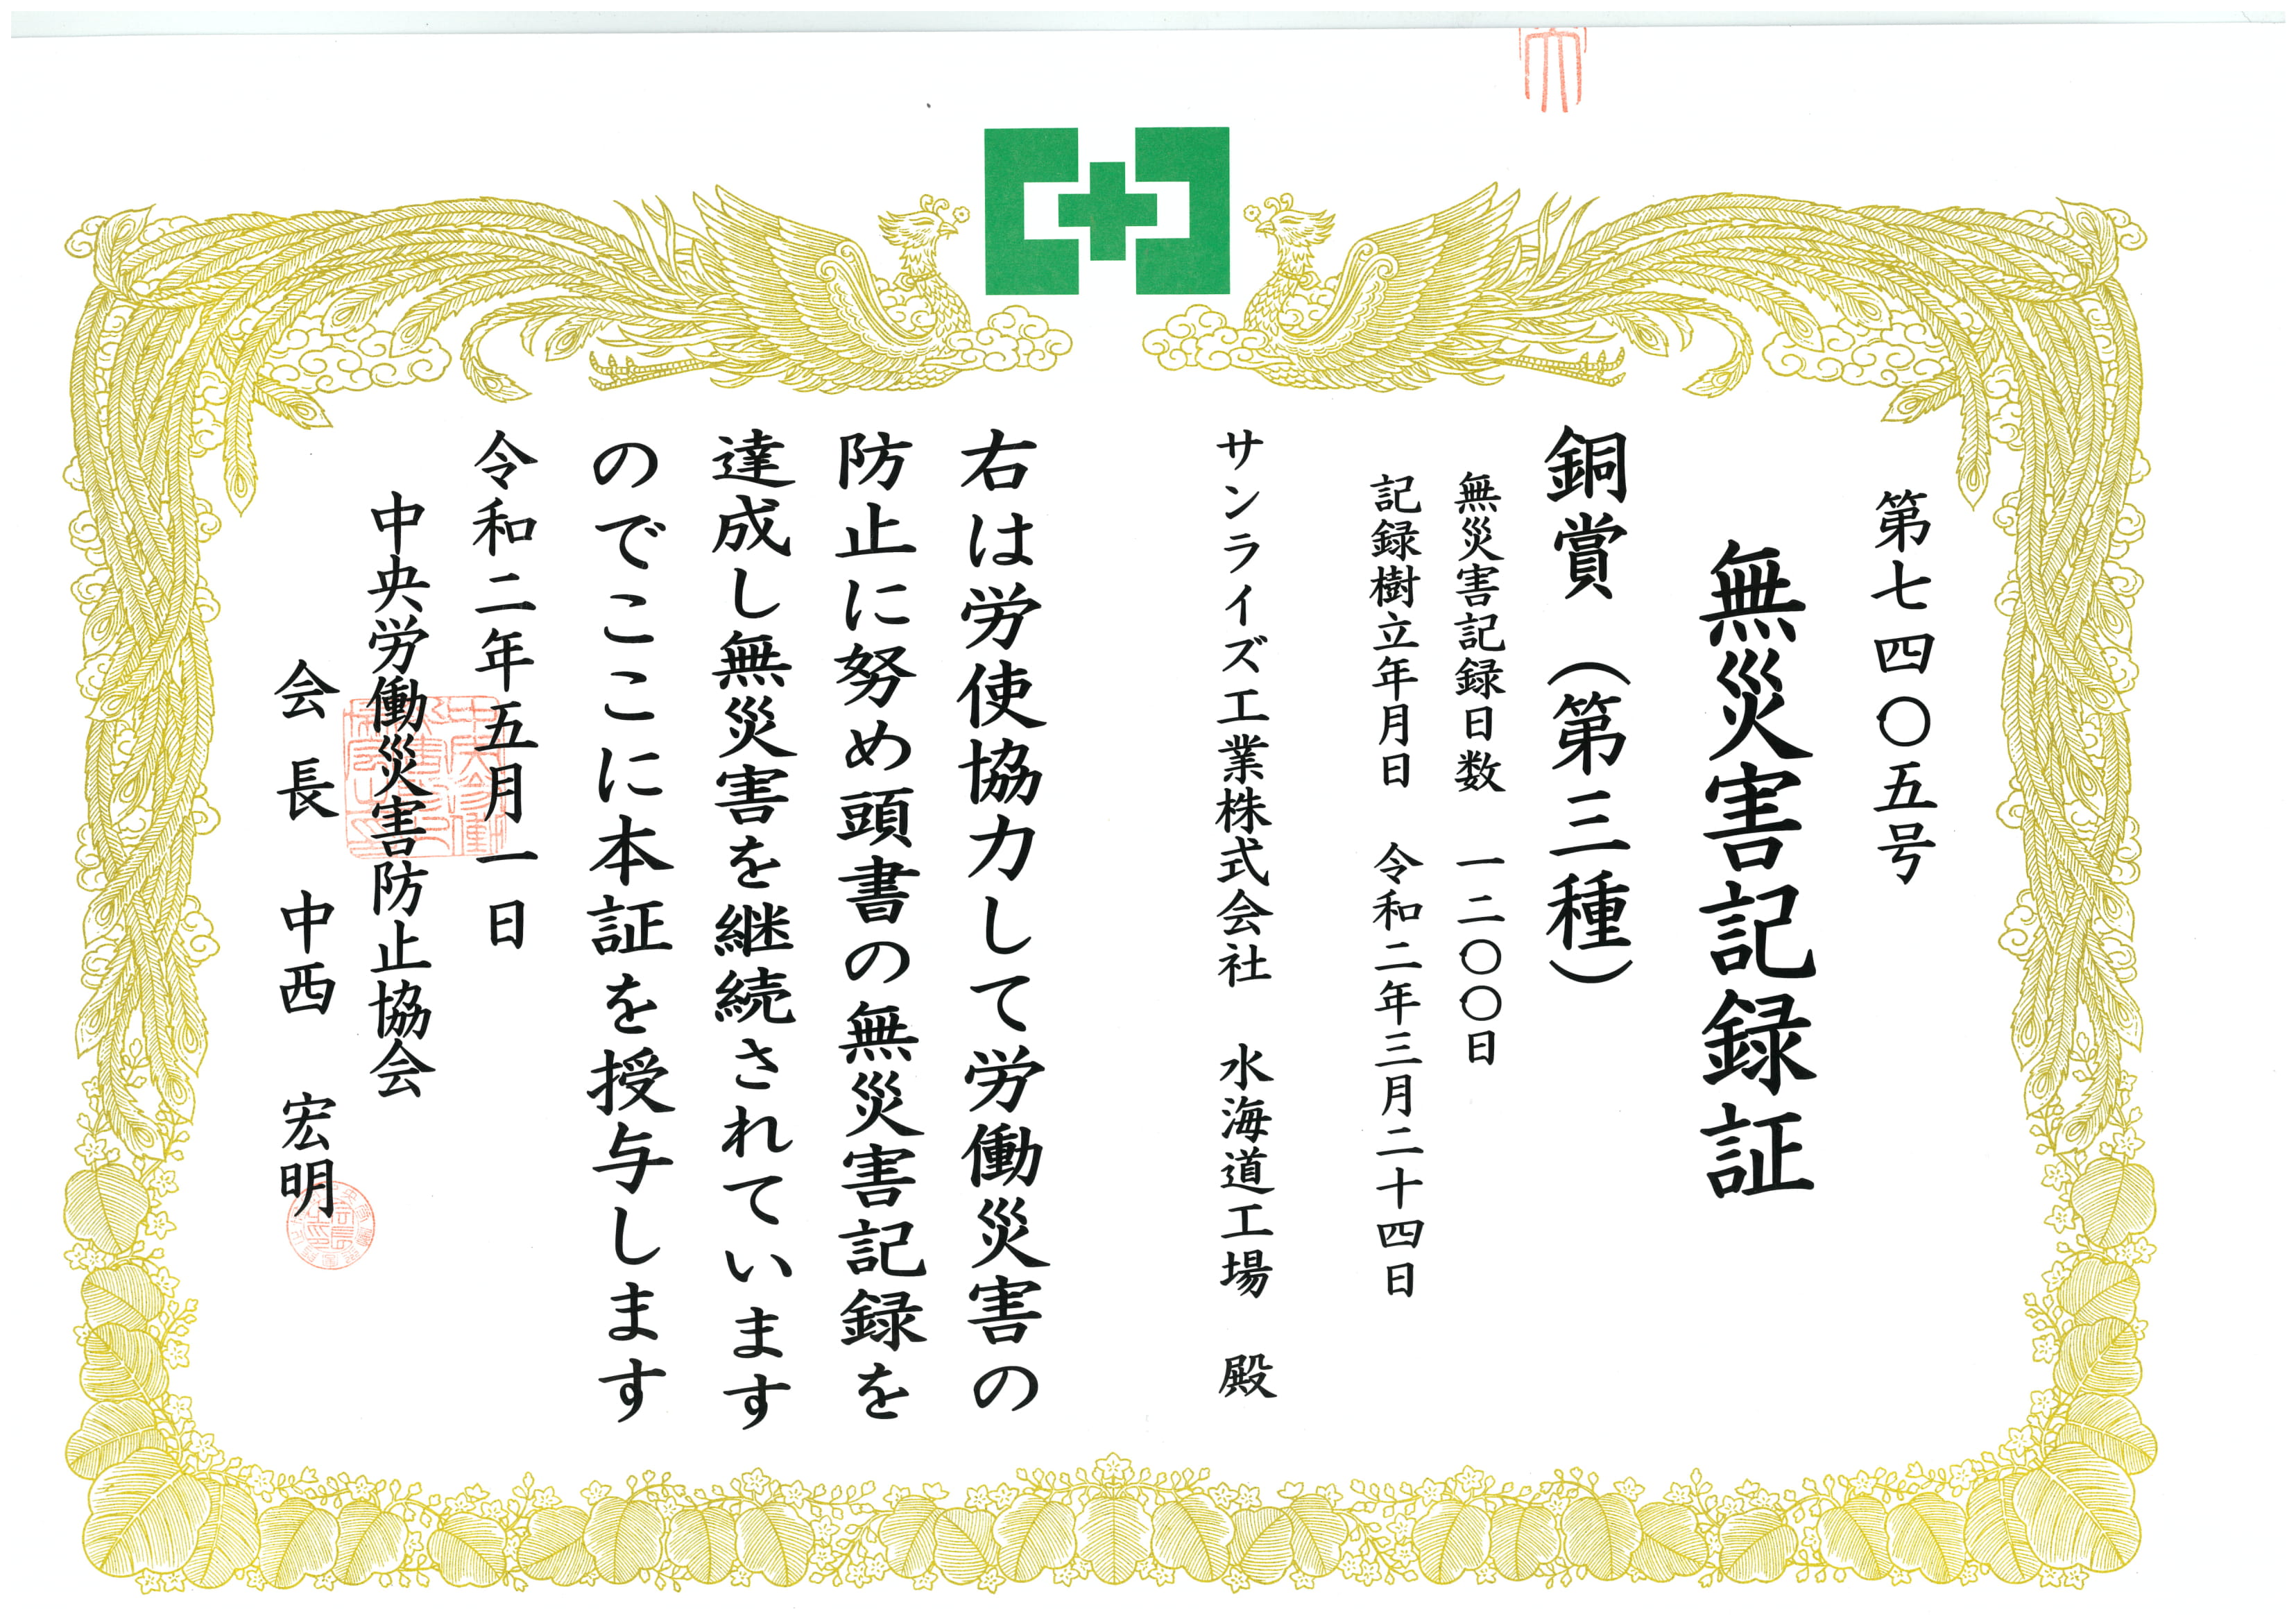 第七四〇五号
無災害記録証
銅賞（第三種）
無災害記録日数 一二〇〇日
記録樹立年月日 令和二年三月二十四日
サンライズ工業株式会社 水海道工場 殿
右は労使協力して労働災害の
防止に努め頭書の無災害記録を
達成し無災害を継続されています
のでここに本証を授与します
令和二年五月一日
中央労働災害防止協会
会長 中西 宏明